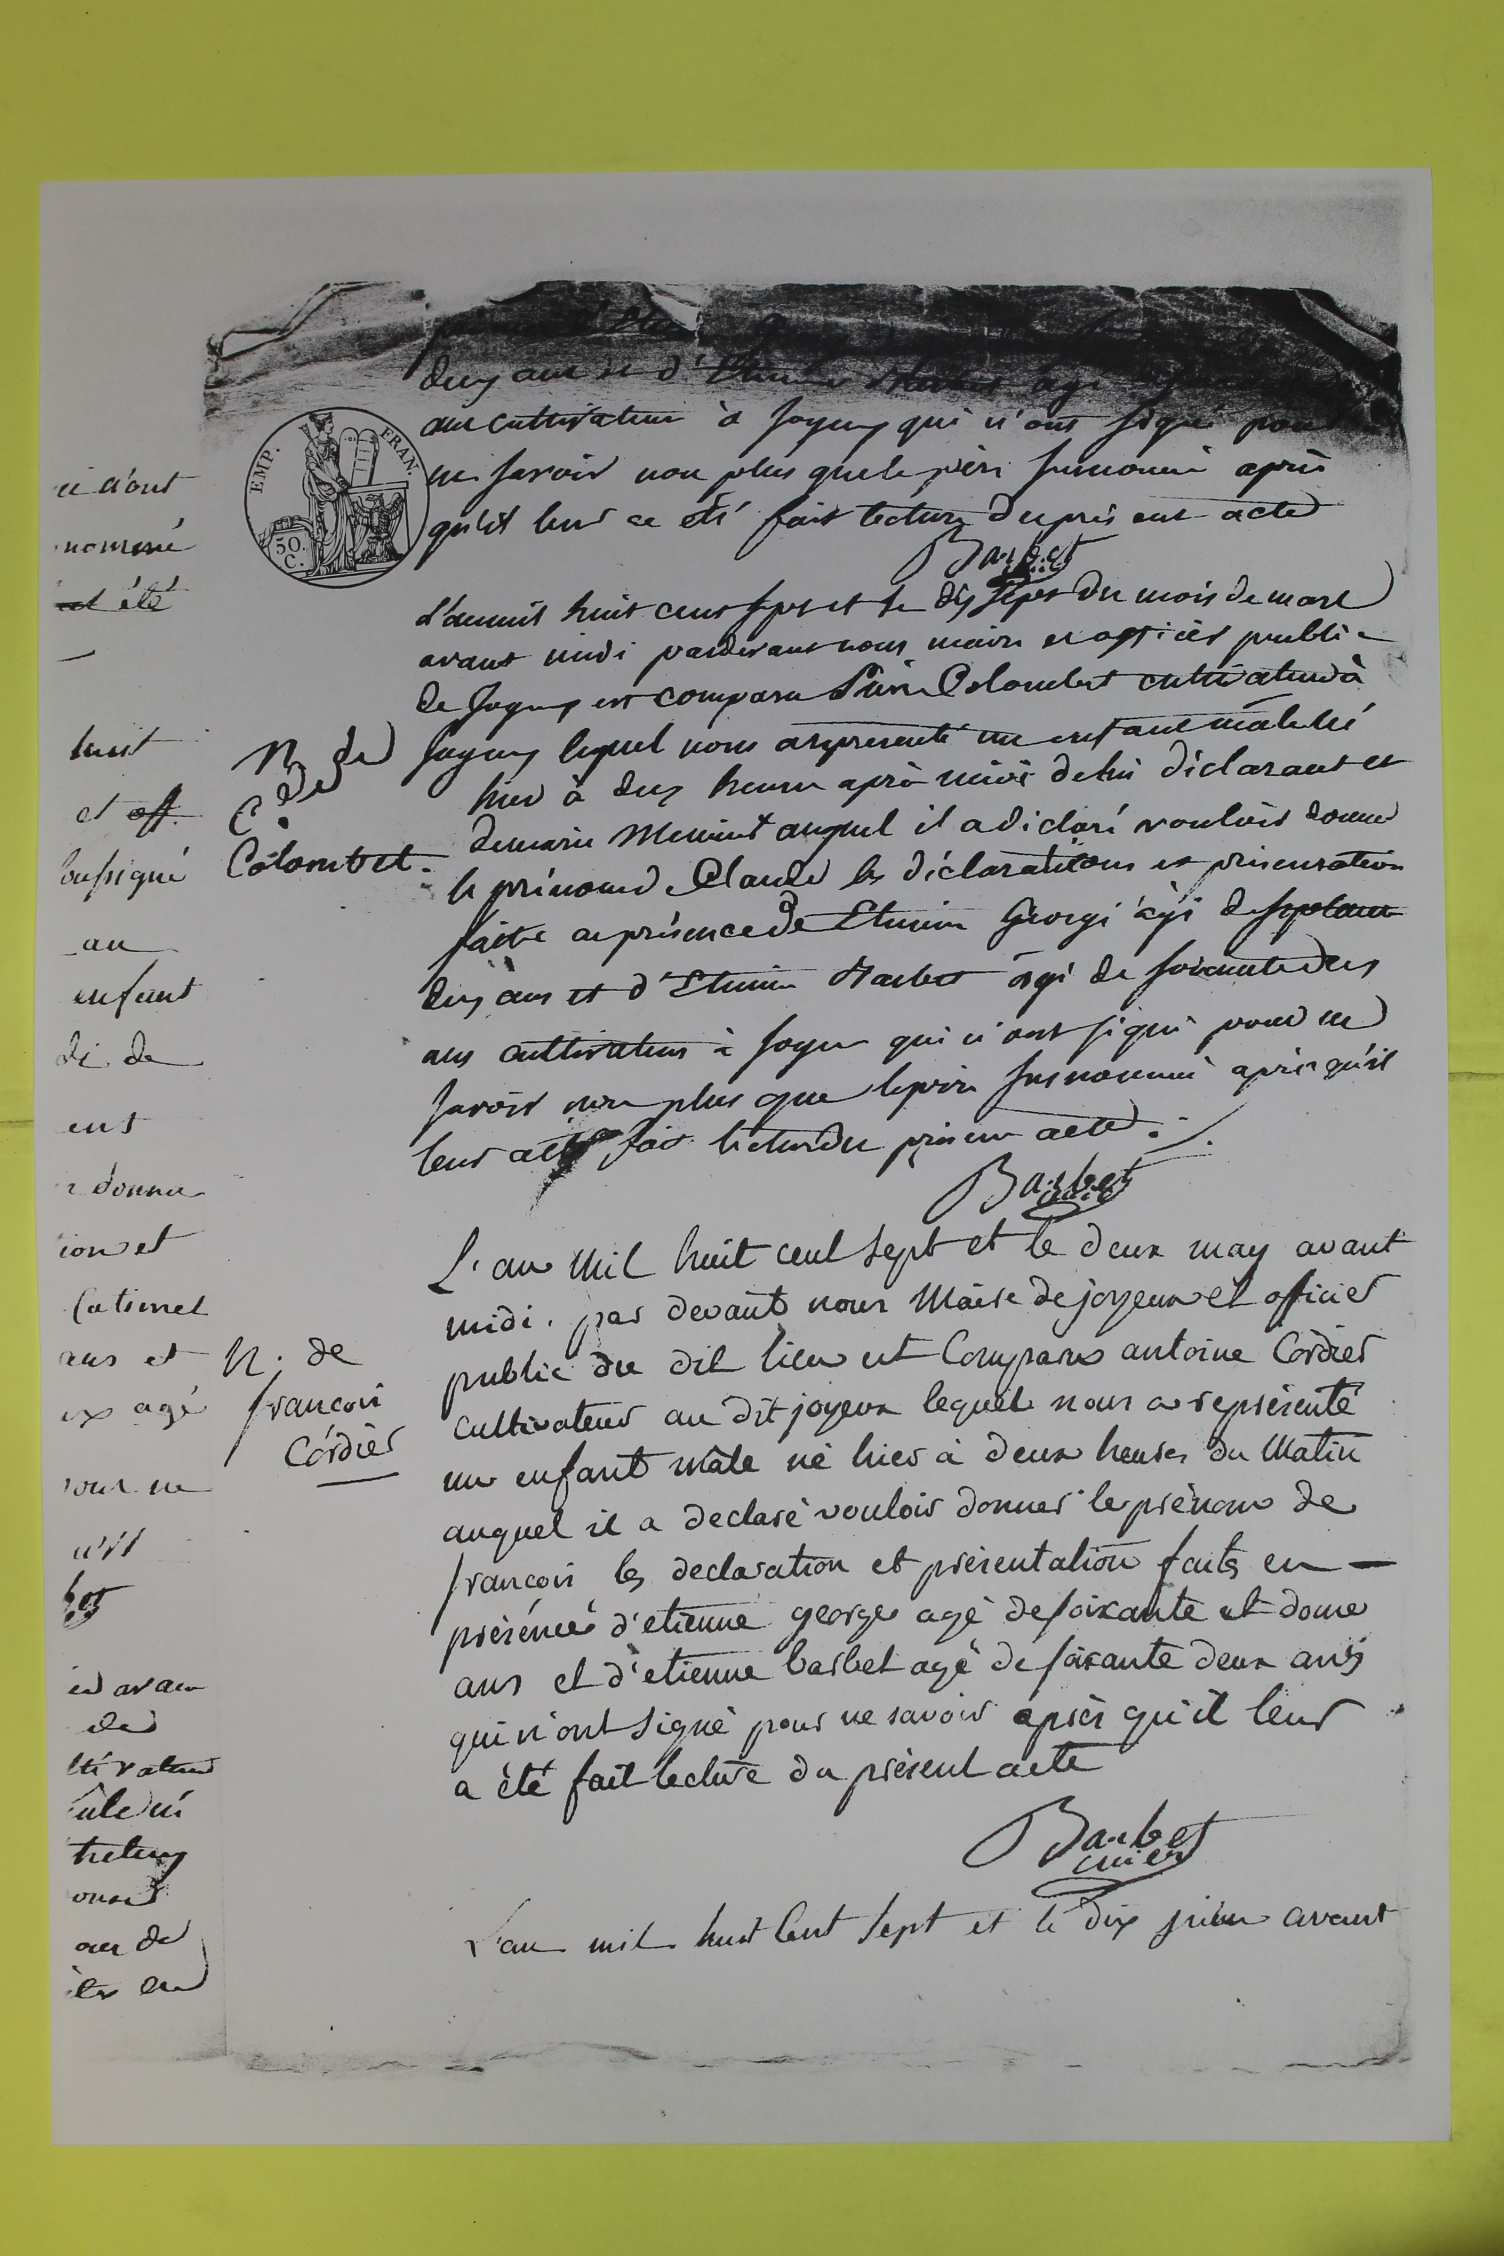 deux ans et d'Etienne Barbet agé
ans cultivateur à Joyeux qui n'ont signé pour
ne savoir non plus que le père surnommé après
qu'il leur a été fait lecture du présent acte
Barbet
maire
EMP. FRAN.
50. C.
L'an mil huit cent sept et le dix sept du mois de mars
avant midi pardevant nous maire et officier public
de Joyeux est comparu Pierre Colombet cultivateur à
Joyeux lequel nous a représenté un enfant mâle né
hier à deux heures après midi de lui déclarant et
de marie auquel il a déclaré vouloir donner
le prénom de Claude les déclarations et présentation
faite en présence de Etienne George âgé de septante
deux ans et d'Etienne Barbet âgé de soixante deux
ans cultivateurs à Joyeux qui n'ont signé pour ne
savoir non plus que le père susnommé après qu'il
leur a été fait lecture du présent acte.
Barbet
maire
N. de
Cde
Colombet.
L'an mil huit cent sept et le deux may avant
midi. par devant nous Maire de joyeux et officier
public du dit lieu est Comparu antoine Cordier
cultivateur au dit joyeux lequel nous a représenté
un enfant mâle né hier à deux heures du Matin
auquel il a declaré vouloir donner le prénom de
françois les declaration et présentation faits en
présence d'etienne george agé de soixante et douze
ans et d'etienne barbet agé de soixante deux ans
qui n'ont signé pour ne savoir après qu'il leur
a été fait lecture du présent acte
Barbet
maire
N. de
françois
Cordier
L'an mil huit Cent Sept et le dix juin avant
ni n'ont
nommé
été
huit
et off.
soussigné
au
enfant
di de
ent
donner
ion et
ans et
ix agé
pour ne
qu'il
bet
avant
de
ltivateur
âle né